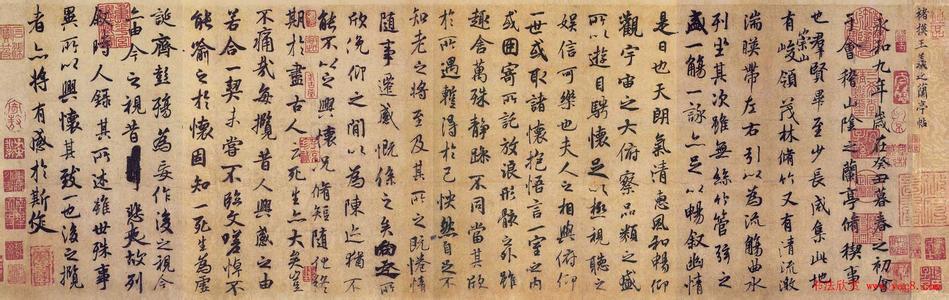 褚模王羲之蘭亭帖
永和九年歲在癸丑暮春之初會
于會稽山陰之蘭亭脩禊事
也羣賢畢至少長咸集此地
有崇山峻領茂林脩竹又有清流激
湍暎帶左右引以為流觴曲水
列坐其次雖無絲竹管弦之
盛一觴一詠亦足以暢敘幽情
是日也天朗氣清惠風和暢仰
觀宇宙之大俯察品類之盛
所以遊目騁懷足以極視聽之
娛信可樂也夫人之相與俯仰
一世或取諸懷抱悟言一室之內
或因寄所託放浪形骸之外雖
趣舍萬殊靜躁不同當其欣
於所遇暫得於己怏然自足不
知老之將至及其所之既惓情
隨事遷感慨係之矣向之所
欣俛仰之間以為陳迹猶不
能不以之興懷況脩短隨化終
期於盡古人云死生亦大矣豈
不痛哉每攬昔人興感之由
若合一契未嘗不臨文嗟悼不
能喻之於懷固知一死生為虛
誕齊彭殤為妄作後之視今
亦由今之視昔悲夫故列
敘時人錄其所述雖世殊事
異所以興懷其致一也後之攬
者亦將有感於斯文
书法欣赏 www.yac8.com